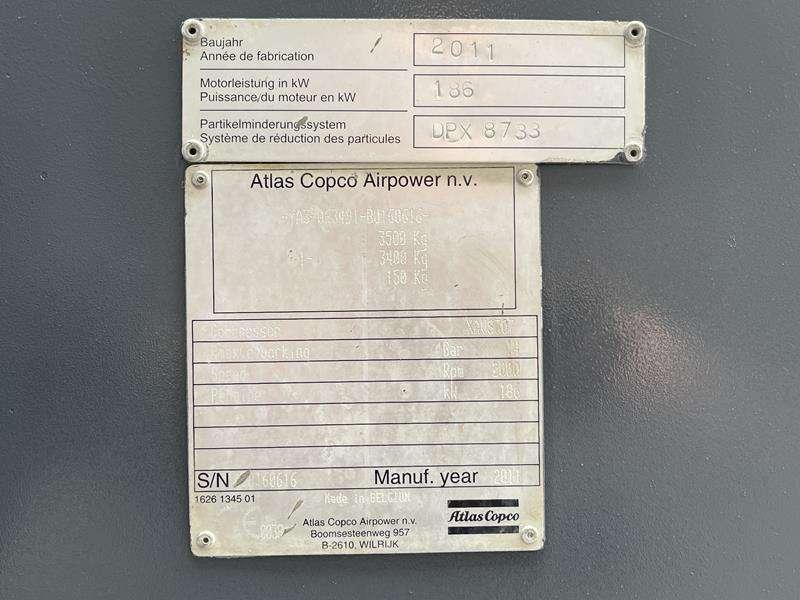 Baujahr
Année de fabrication
2011
Motorleistung in kW
Puissance/du moteur en kW
186
Partikelminderungssystem
Système de réduction des particules
DPX 8733
Atlas Copco Airpower n.v.
3500 Kg
-1- 3400 Kg
150 Kg
Compressor
Working Bar 14
Speed Rpm 2000
kW 186
S/N 160616 Manuf. year 2011
1626 1345 01
Made in BELGIUM
Atlas Copco Airpower n.v.
Boomsesteenweg 957
B-2610, WILRIJK
Atlas Copco